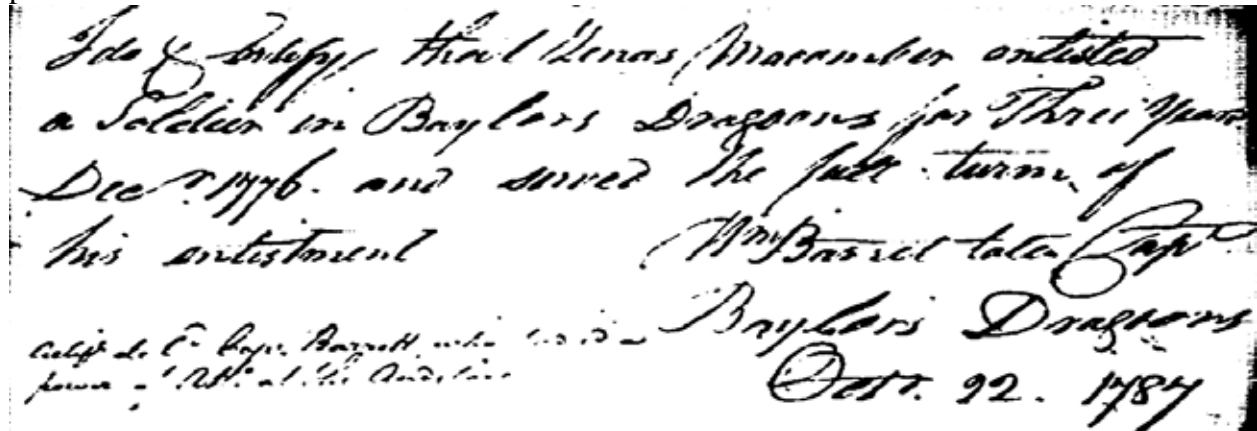 I do Certify, that Zenas Macomber entisted
a Soldier in Baylors Dragoons for Three Years
Decr. 1776. and served the full turm of
his entistment
Wm Barret late Capt
Baylors Dragoons
Octr. 22. 1787
Capt. Barrett who
power at the